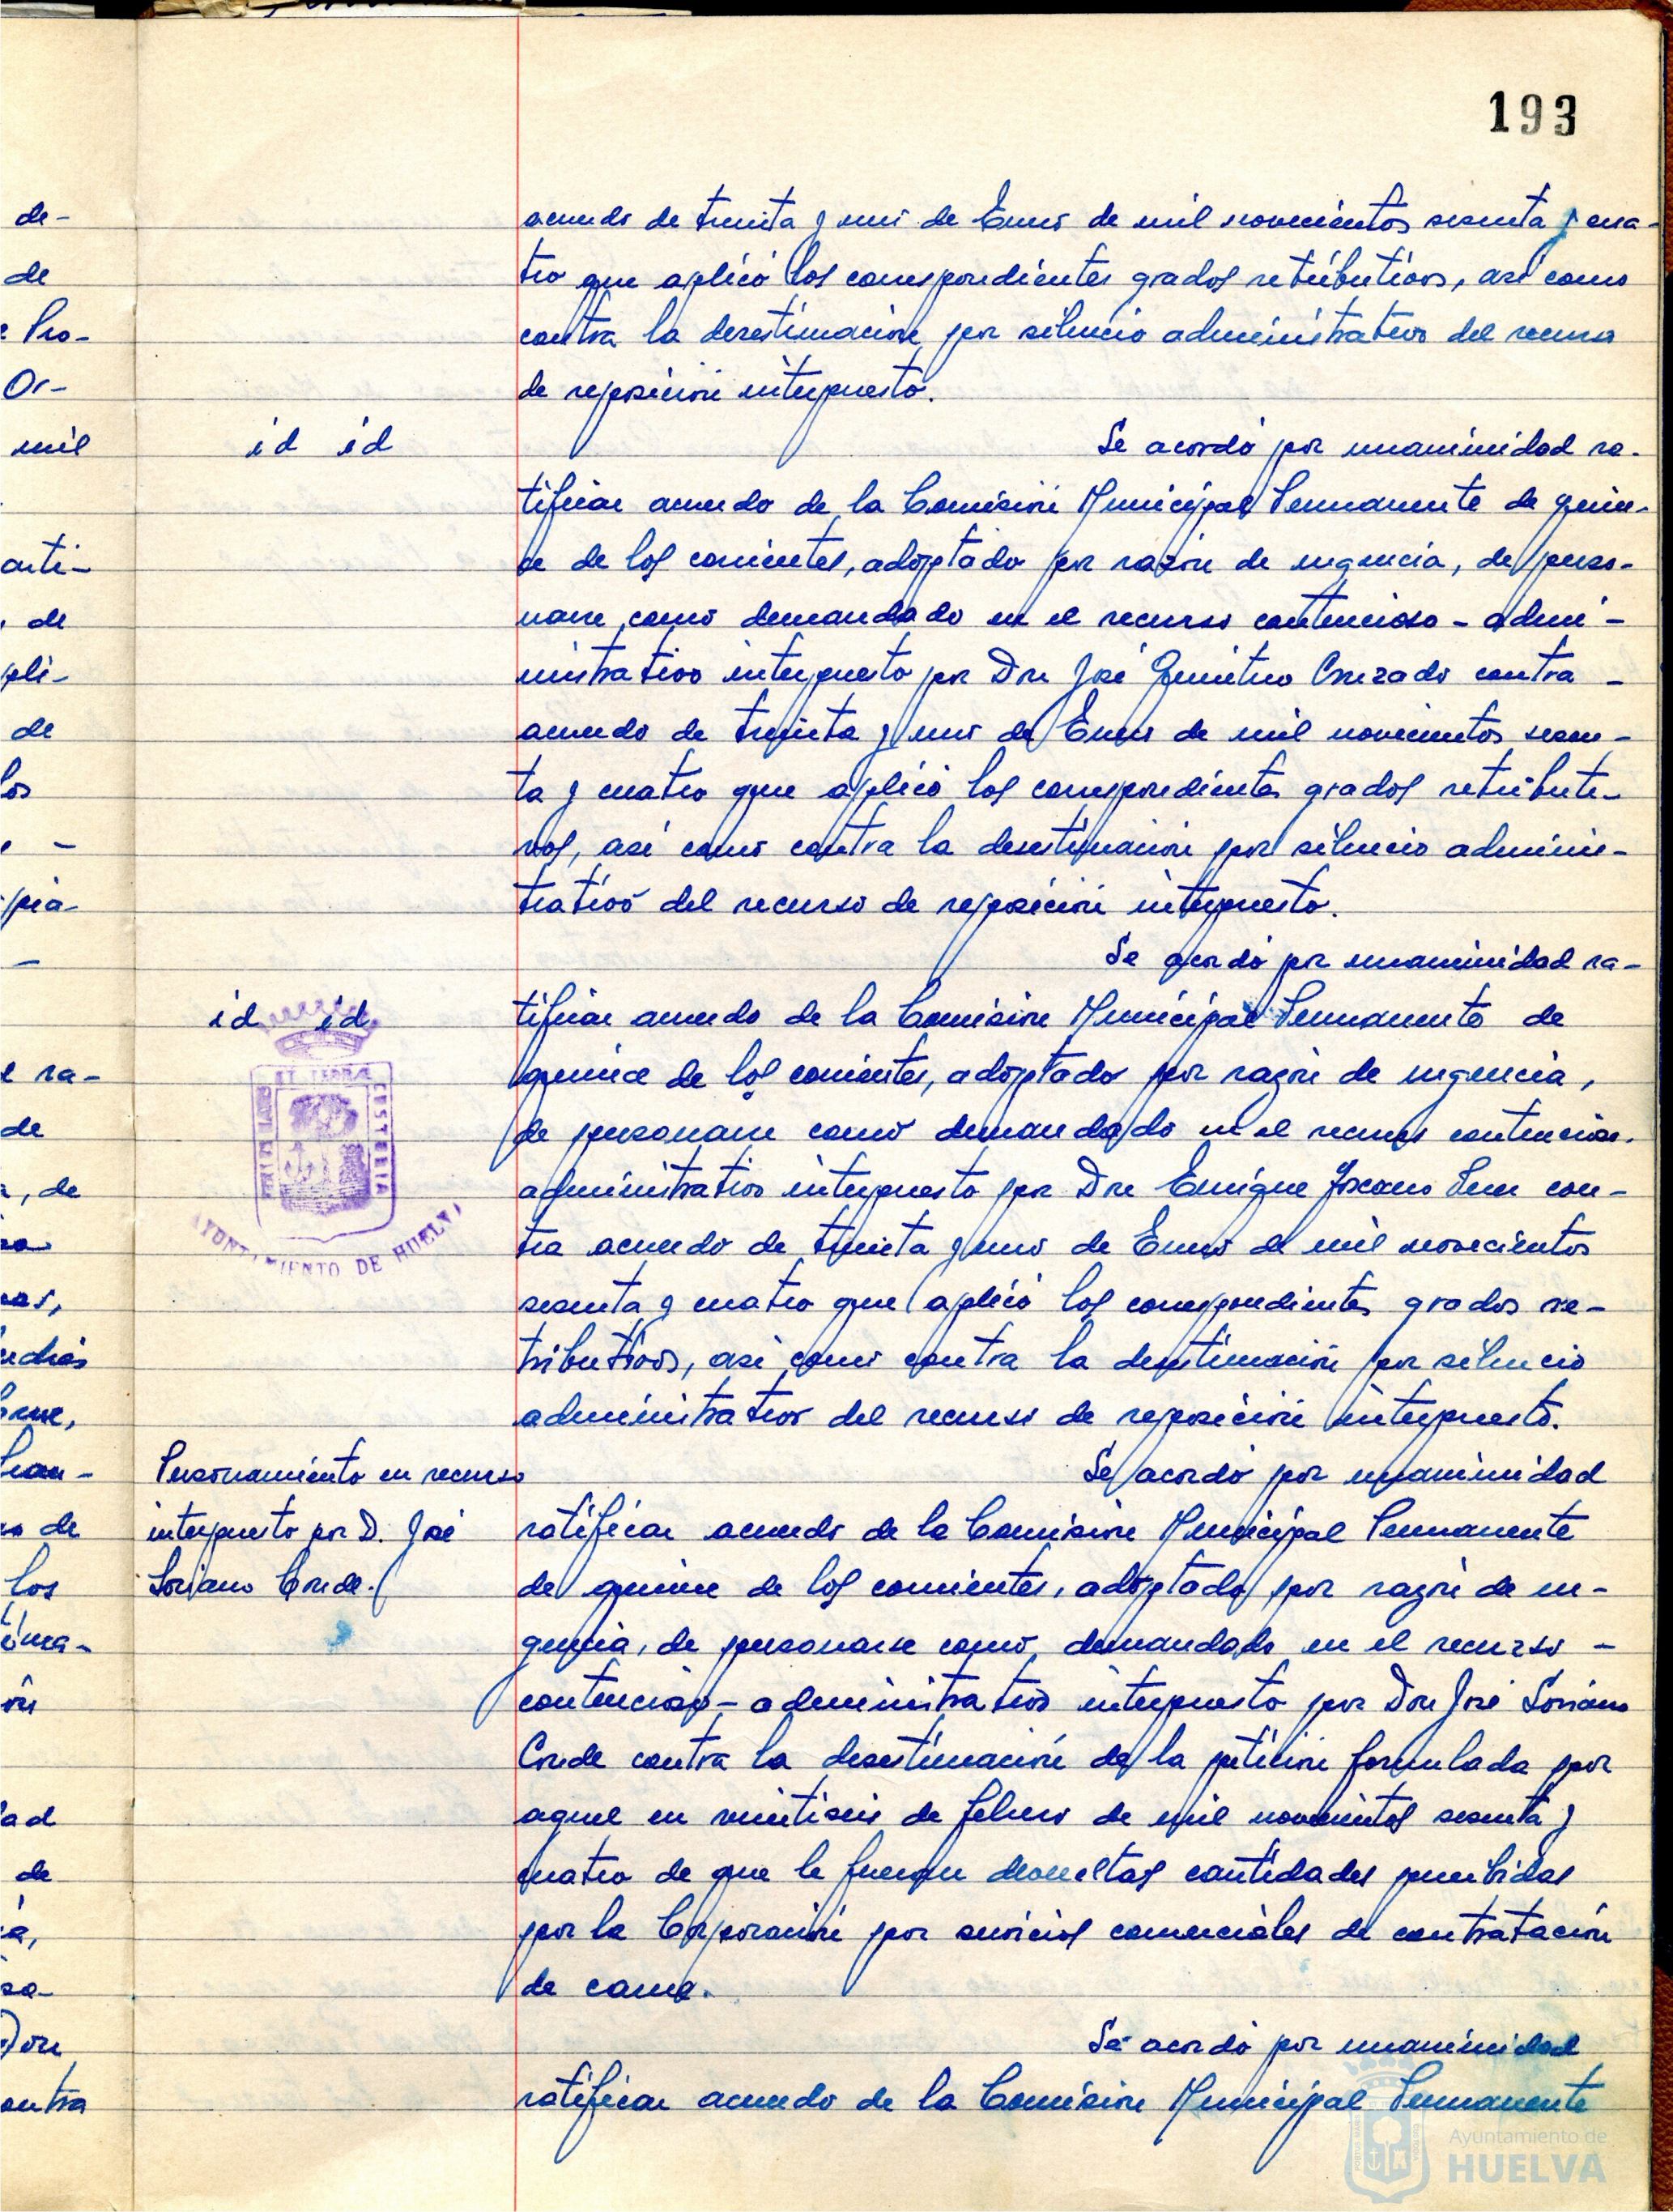 193
acuerdo de treinta y uno de Enero de mil novecientos sesenta y cua-
tro que aplicó los correspondientes grados retributivos, así como
contra la desestimación por silencio administrativo del recurso
de reposición interpuesto.
id id
Se acordó por unanimidad ra-
tificar acuerdo de la Comisión Municipal Permanente de quin-
ce de los corrientes, adoptado por razón de urgencia, de perso-
narse como demandado en el recurso contencioso-admi-
nistrativo interpuesto por Don José Quintero Cruzado contra -
acuerdo de treinta y uno de Enero de mil novecientos sesen-
ta y cuatro que aplicó los correspondientes grados retributi-
vos, así como contra la desestimación por silencio adminis-
trativo del recurso de reposición interpuesto.
Se acordó por unanimidad ra-
id id
tificar acuerdo de la Comisión Municipal Permanente de
quince de los corrientes, adoptado por razón de urgencia,
de personarse como demandado en el recurso contencioso-
administrativo interpuesto por Don Enrique con-
tra acuerdo de treinta y uno de Enero de mil novecientos
sesenta y cuatro que aplicó los correspondientes grados re-
tributivos, así como contra la desestimación por silencio
administrativo del recurso de reposición interpuesto.
AYUNTAMIENTO DE HUELVA
Personamiento en recurso
interpuesto por D. José
Soriano Conde.
Se acordó por unanimidad
ratificar acuerdo de la Comisión Municipal Permanente
de quince de los corrientes, adoptado por razón de ur-
gencia, de personarse como demandado en el recurso -
contencioso-administrativo interpuesto por Don José Soriano
Conde contra la desestimación de la petición formulada por
aquel en veintiseis de febrero de mil novecientos sesenta y
cuatro de que le fueran devueltas cantidades percibidas
por la Corporación por servicios comerciales de contratación
de carne.
Se acordó por unanimidad
ratificar acuerdo de la Comisión Municipal Permanente
Ayuntamiento de
HUELVA